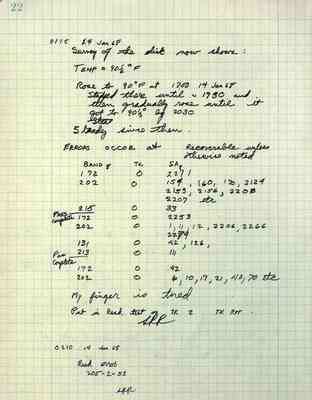 22
0115 14 Jan 68
Survey of the disk now shows:
TEMP = 90½° F
Rose to 90°F at 1700 14 Jan 68
Stayed there until ~ 1930 and
then gradually rose until it
got to 90½ by 2030
Steady since then.
ERRORS OCCUR AT Recoverable unless otherwise noted
BAND # TK SA
172 0 2271
202 0 154, 160, 170, 2124
2153, 2156, 2208
2207 etc
215 0 33
Pass Complete 172 0 2253
202 0 1, 11, 12, 2206, 2266
131 0 42, 126,
Pass Complete 213 0 14
172 0 42
202 0 6, 10, 17, 21, 70 etc
My finger is tired.
Put in Read test TK
0210 14 Jan 68
Read error
205-2-53